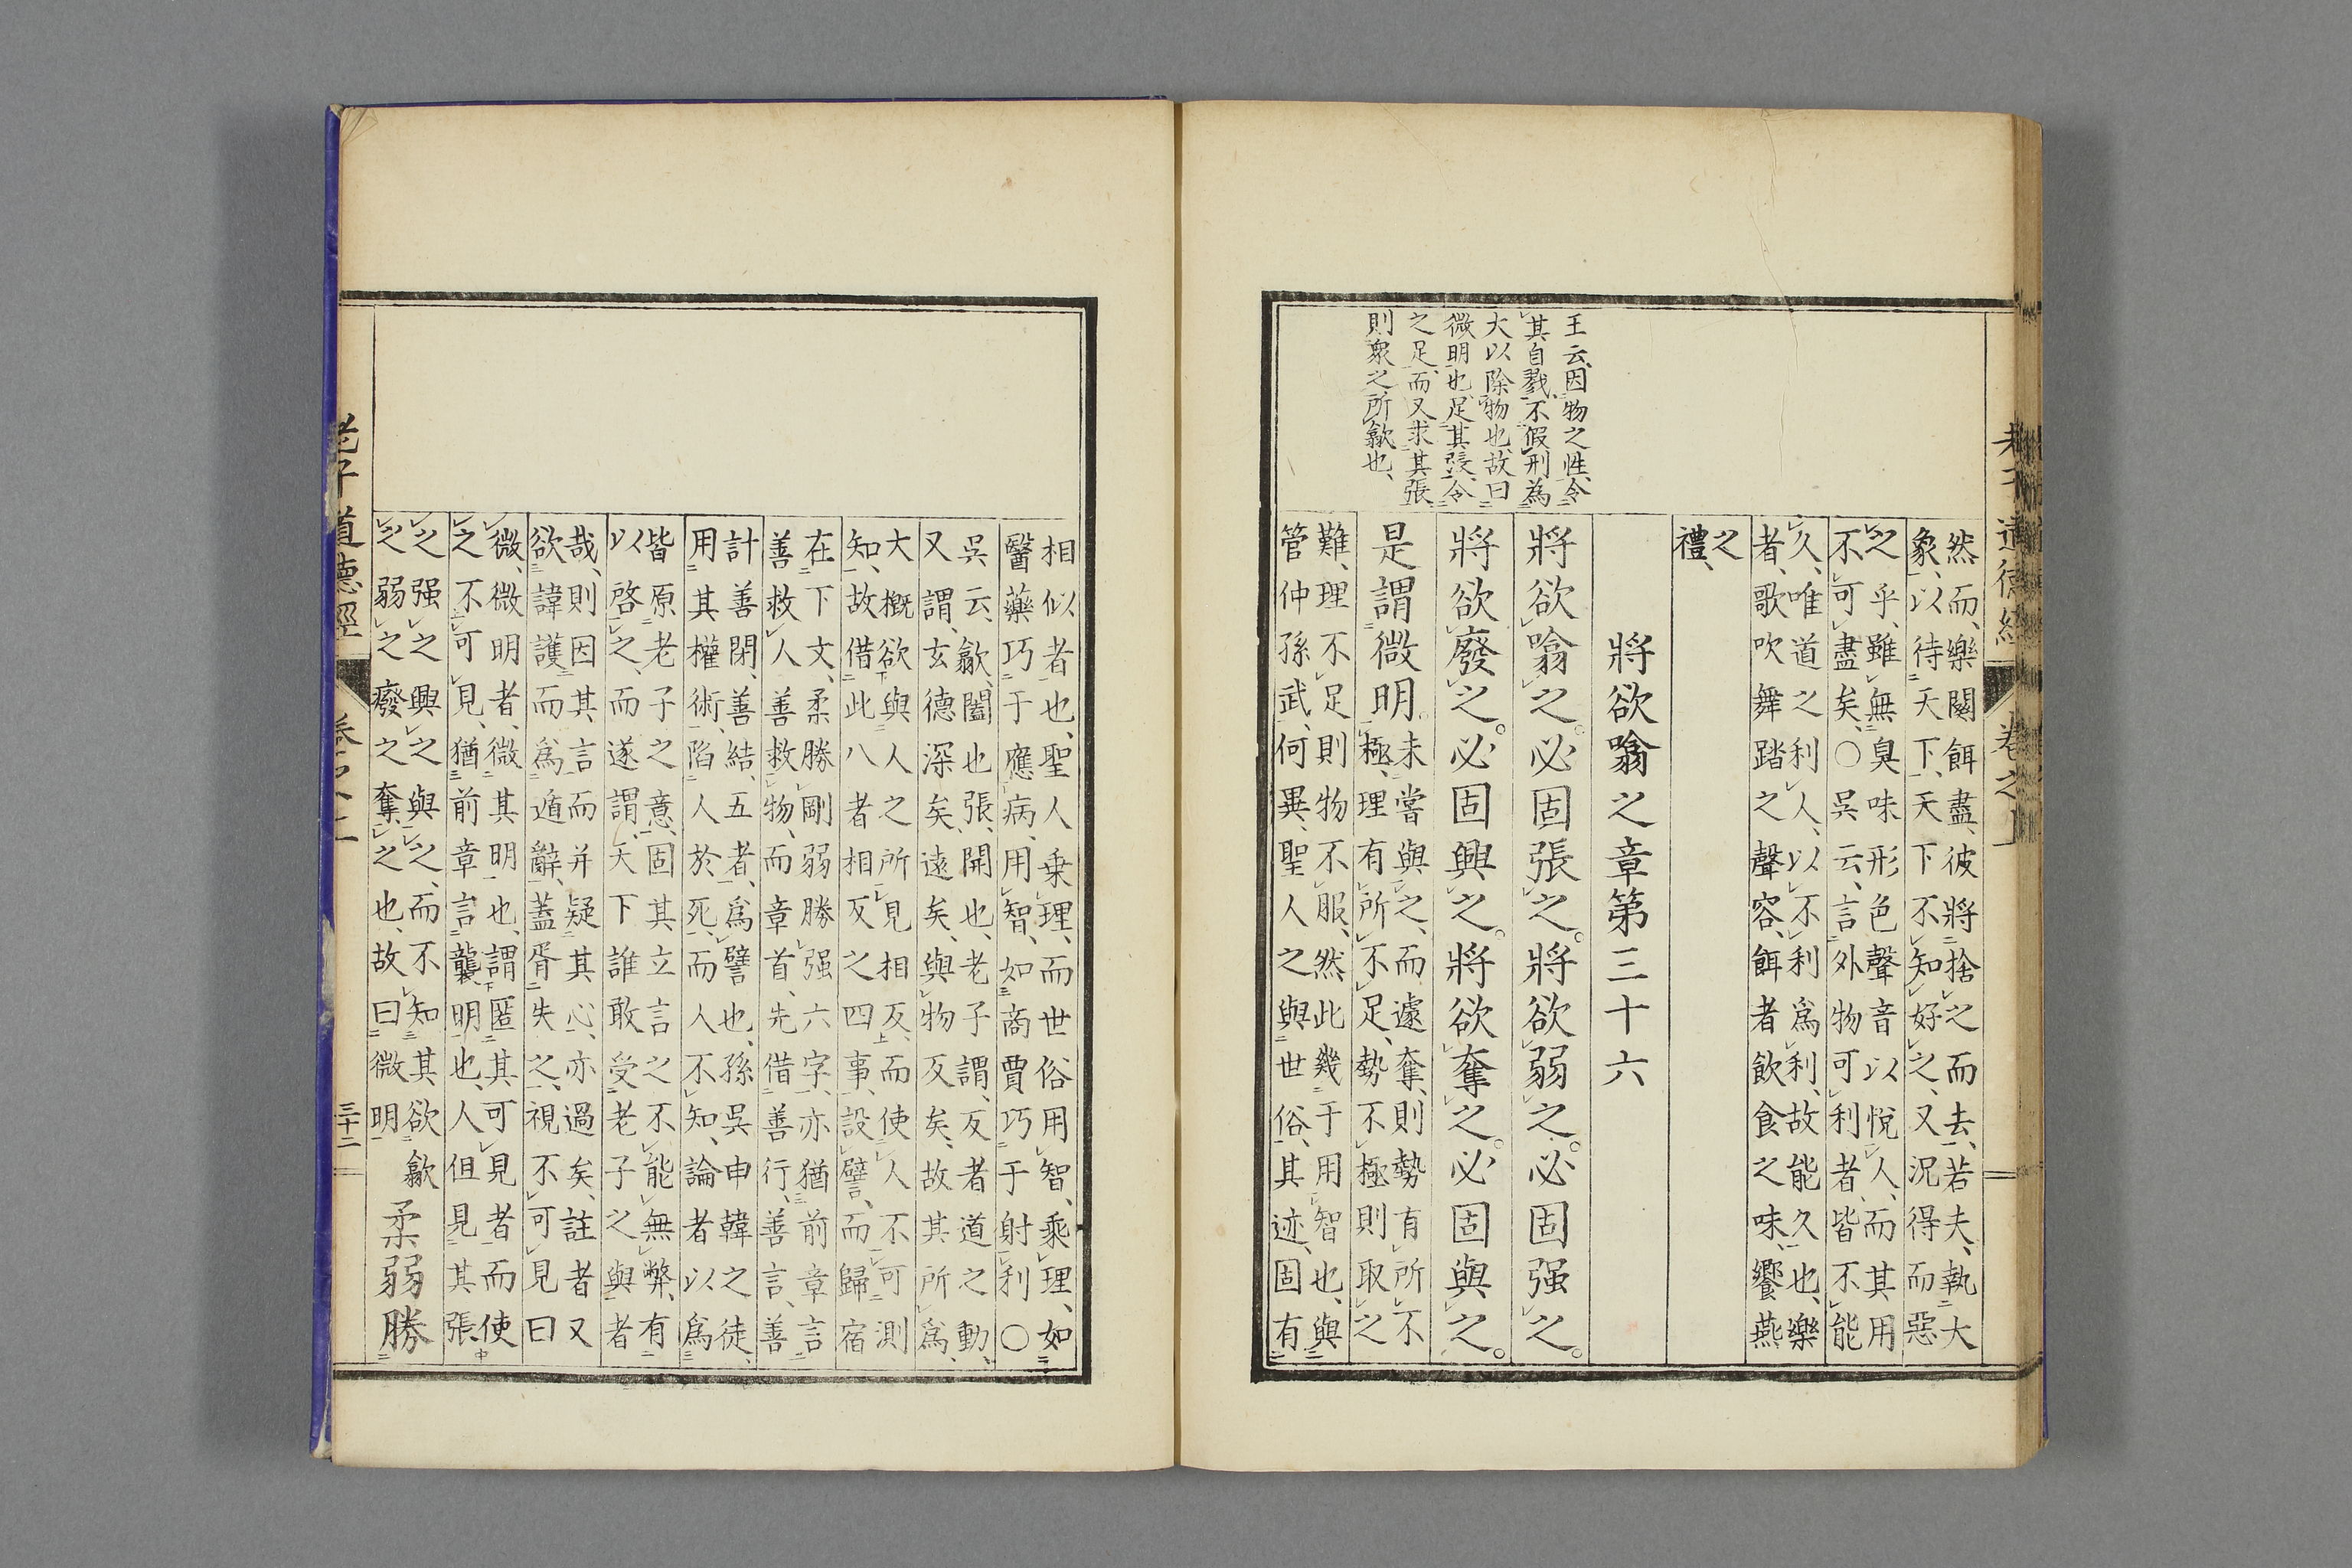 王云、因物之性、令
其自戮、不假刑為
大以除物也、故曰
微明也、足其張、令
之足、而又求其張
則衆之所歙也、
然而、樂闋餌盡、彼將捨之而去、若夫、執大
象、以待天下、天下不知好之、又況得而惡
之乎、雖無臭味形色聲音以悅人、而其用
不可盡矣、○吳云、言外物可利者、皆不能
久、唯道之利人、以不利爲利、故能久也、樂
者、歌吹舞踏之聲容、餌者飲食之味、饗燕
之
禮、
將欲噏之章第三十六
將欲噏之。必固張之。將欲弱之。必固强之。
將欲廢之。必固興之。將欲奪之。必固與之。
是謂微明。
未嘗與之、而遽奪、則勢有所不
極、理有所不足、勢不極則取之
難、理不足則物不服、然此幾于用智也、與
管仲孫武、何異、聖人之與世俗、其迹、固有
老子道德經 卷之上
相似者也、聖人乗理、而世俗用智、乘理、如
醫藥巧于應病、用智、如商賈巧于射利○
吳云、歙、闔也、張、開也、老子謂、反者道之動、
又謂、玄德深矣、遠矣、與物反矣、故其所爲、
大概欲與人之所見相反、而使人不可測
知、故借此八者相反之四事、設譬、而歸宿
在下文、柔勝剛弱勝强六字、亦猶前章言
善救人善救物、而章首、先借善行、善言、善
計善閉、善結、五者、爲譬也、孫吳申韓之徒、
用其權術、陷人於死、而人不知、論者以爲
皆原老子之意、固其立言之不能無弊、有
以啓之、而遂謂、天下誰敢受老子之與者
哉、則因其言而并疑其心、亦過矣、註者又
欲諱護而爲遁辭、蓋胥失之、視不可見曰
微、微明者微其明也、謂匿其可見者而使
之不可見、猶前章言襲明也、人但見其張
之强之興之與之、而不知其欲歙
之弱之廢之奪之也、故曰微明
柔弱勝
老子道德經 卷之上 三十二